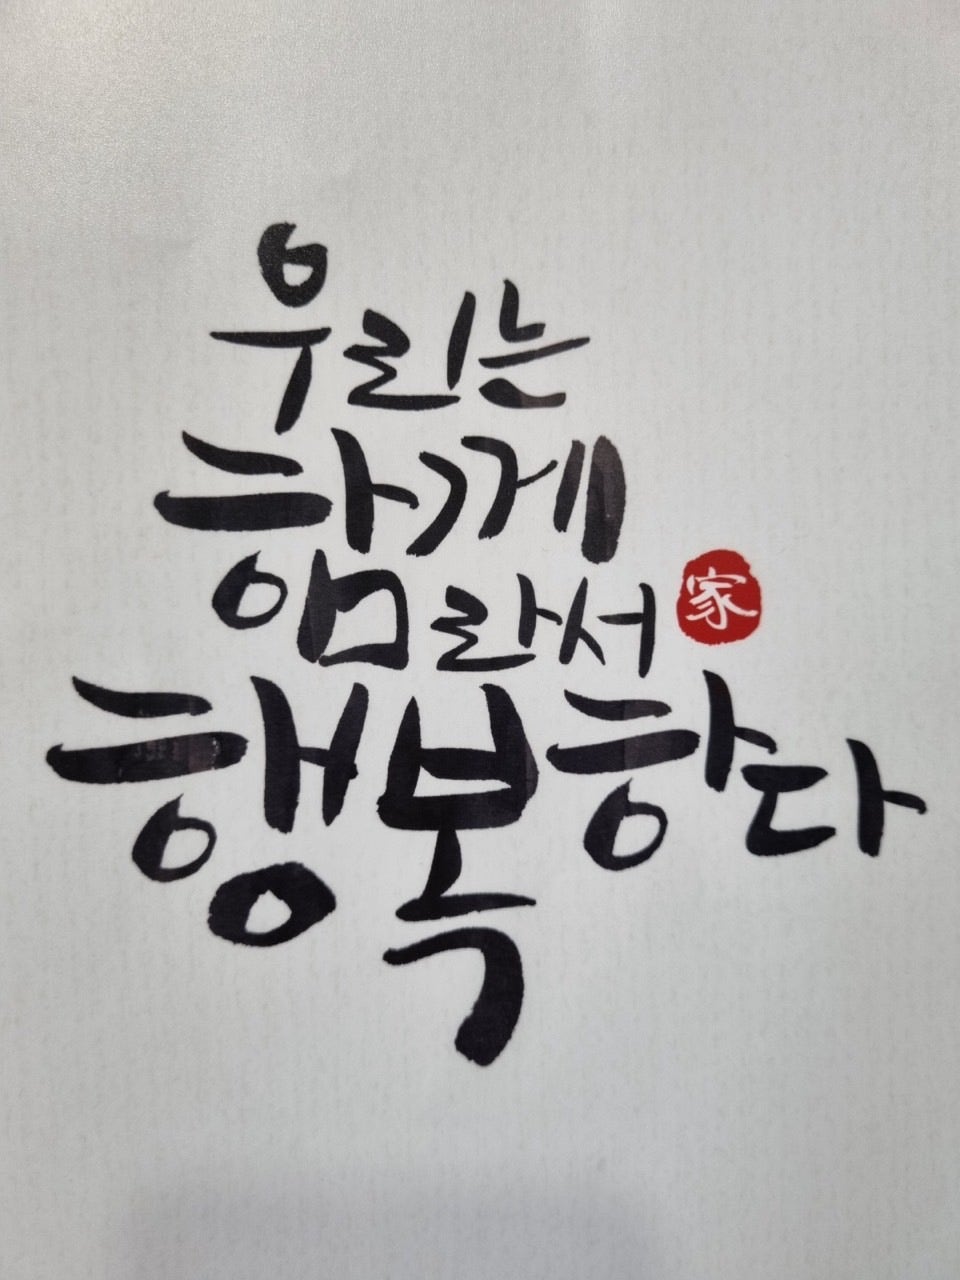 우리는
함께
라서 家
행복하다